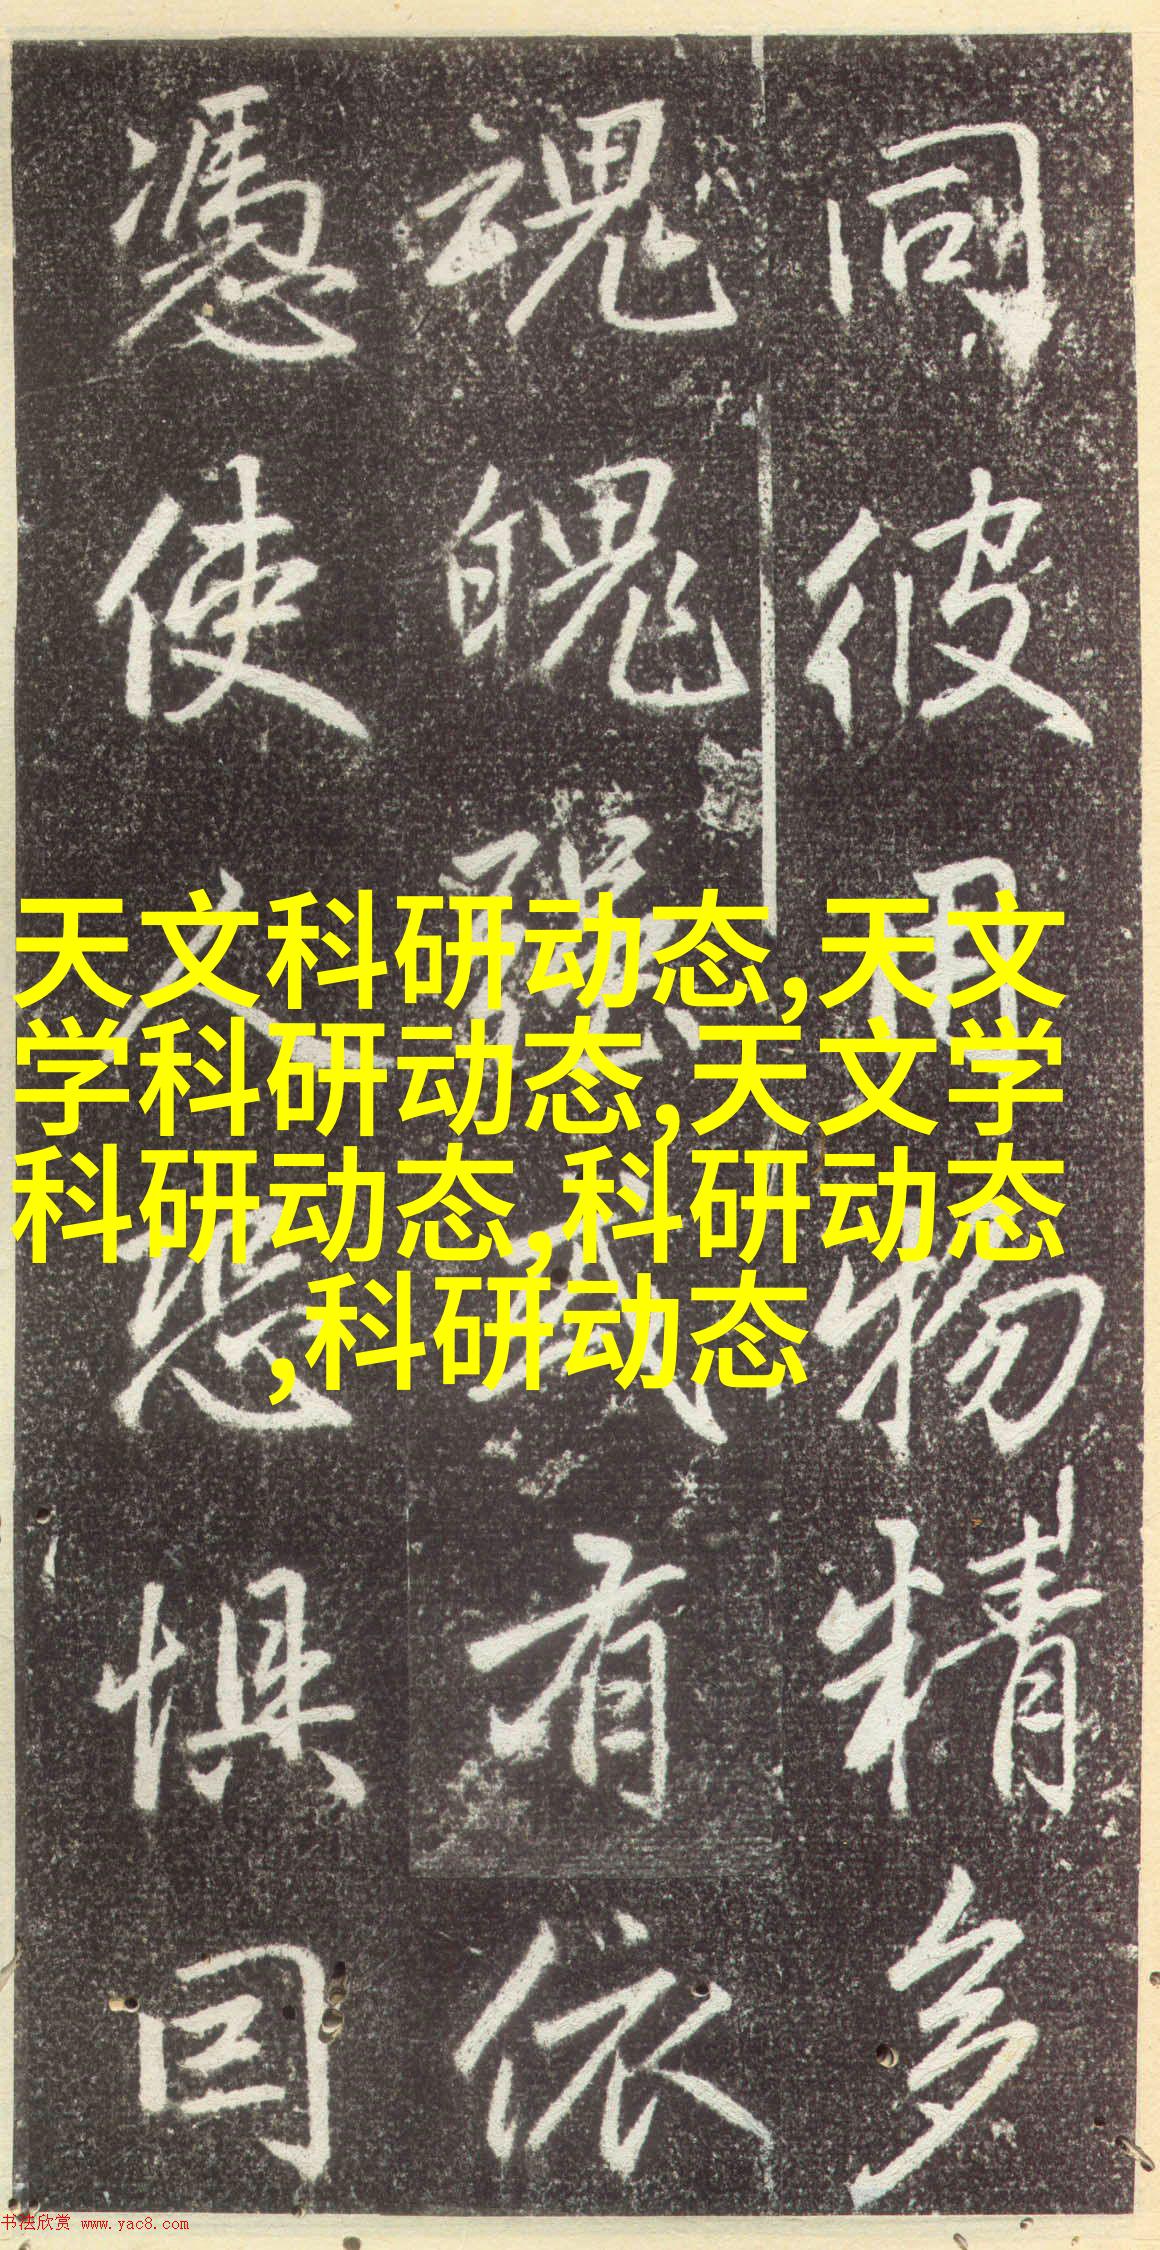 天文科研动态,天文
学科研动态,天文学
科研动态,科研动态
,科研动态
同彼用物精多
魂魄强或有依
憑使人恐惧囙
书法欣赏 www.yac8.com